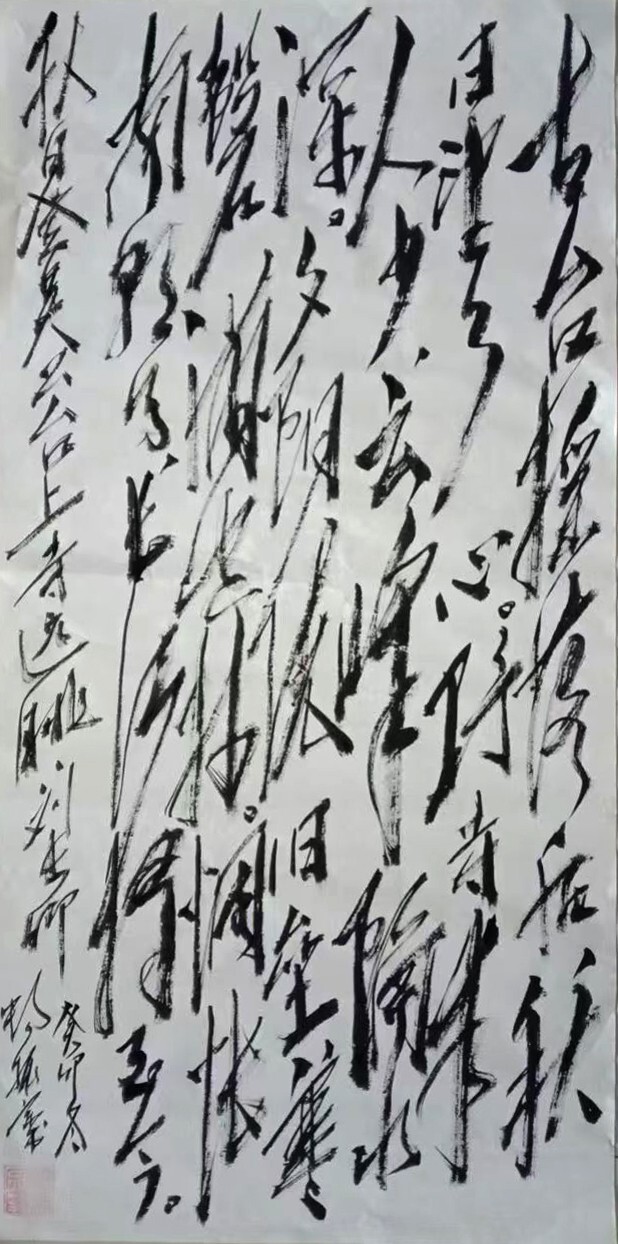 古台摇落后秋
日望乡心。野寺来
人少云峰隔水
深。夕阳依旧垒寒
磬满空林。惆怅
南朝事长江独至今。
秋日登吴公台上寺远眺 刘长卿
癸卯冬